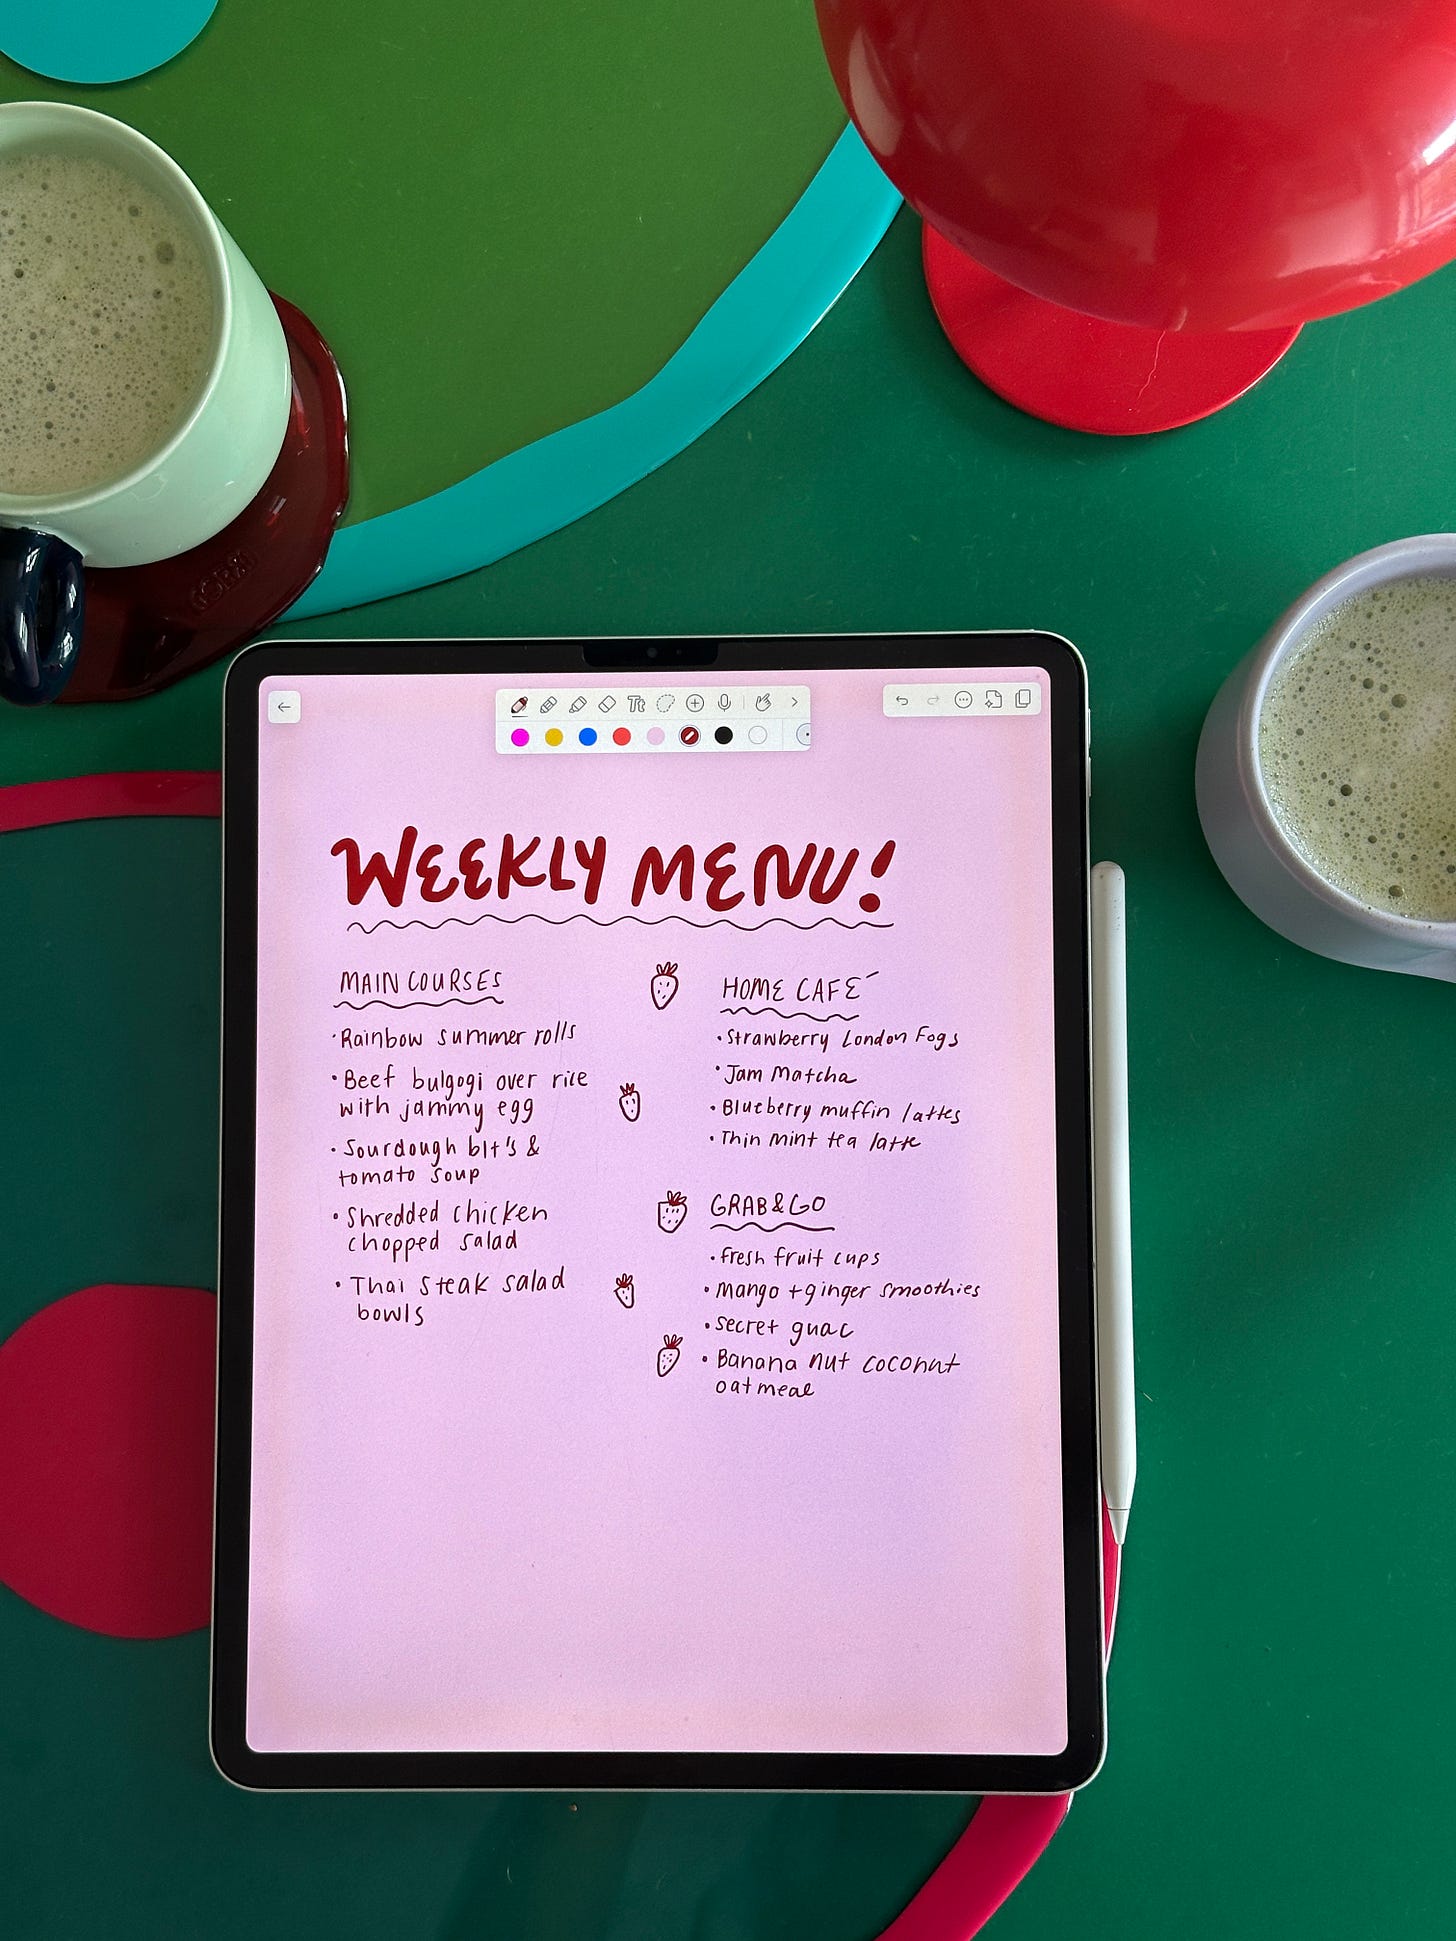 WEEKLY MENU!
MAIN COURSES
• Rainbow summer rolls
• Beef bulgogi over rice
with jammy egg
• Sourdough blt's &
tomato soup
• Shredded chicken
chopped salad
• Thai steak salad
bowls
HOME CAFÉ
• Strawberry London Fogs
• Jam Matcha
• Blueberry muffin lattes
• Thin mint tea latte
GRAB&GO
• fresh fruit cups
• Mango + ginger smoothies
• secret guac
• Banana nut coconut
oatmeal